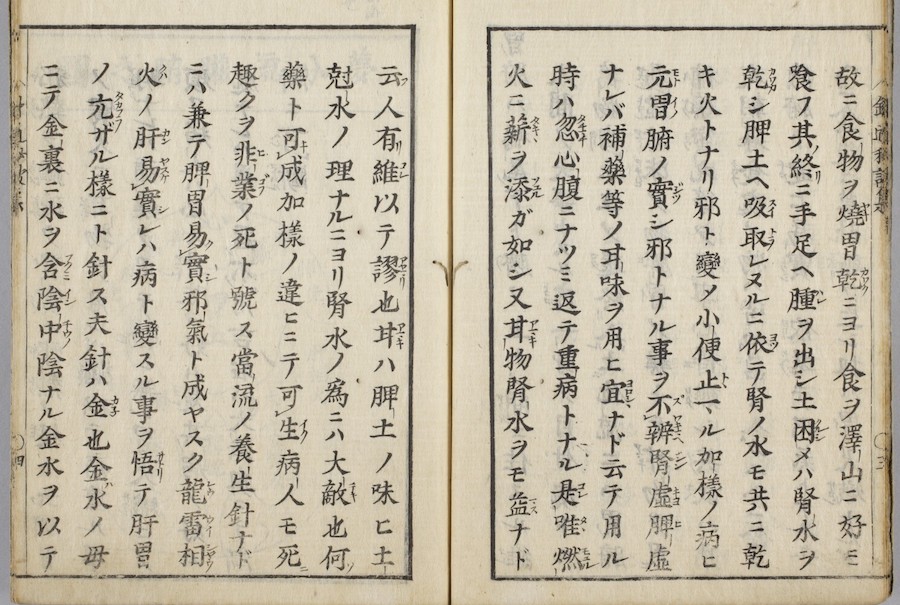 故ニ食物ヲ燒胃乾ニヨリ食ヲ澤山ニ好ミ
飡フ其終ニ手足ヘ腫ヲ出シ土困メハ腎水ヲ
乾シ脾土ヘ吸取レヌルニ依テ腎ノ水モ共ニ乾
キ火トナリ邪ト變メ小便止ヽル如樣ノ病ヒ
元胃腑ノ實シ邪トナル事ヲ不辨腎虛脾虛
ナレバ補藥等ノ耳味ヲ用ヒ宜ナド云テ用ル
時ハ忽心腹ニナツミ返テ重病トナル是唯燃
火ニ薪ヲ漆ガ如シ又耳物腎水ヲモ益ナド
云人有維以テ謬也耳ハ脾土ノ味ヒ土
尅水ノ理ナルニヨリ腎水ノ爲ニハ大敵也何
藥ト可成加樣ノ違ヒニテ可生病人モ死
趣クヲ非業ノ死ト號ス當流ノ養生針ナド
ニハ兼テ脾胃易實邪氣ト成ヤスク龍雷相
火ノ肝易實レハ病ト變スル事ヲ悟テ肝胃
ノ亢ザル樣ニト針ス夫針ハ金也金水ノ母
ニテ金裏ニ水ヲ含陰中陰ナル金水ヲ以テ